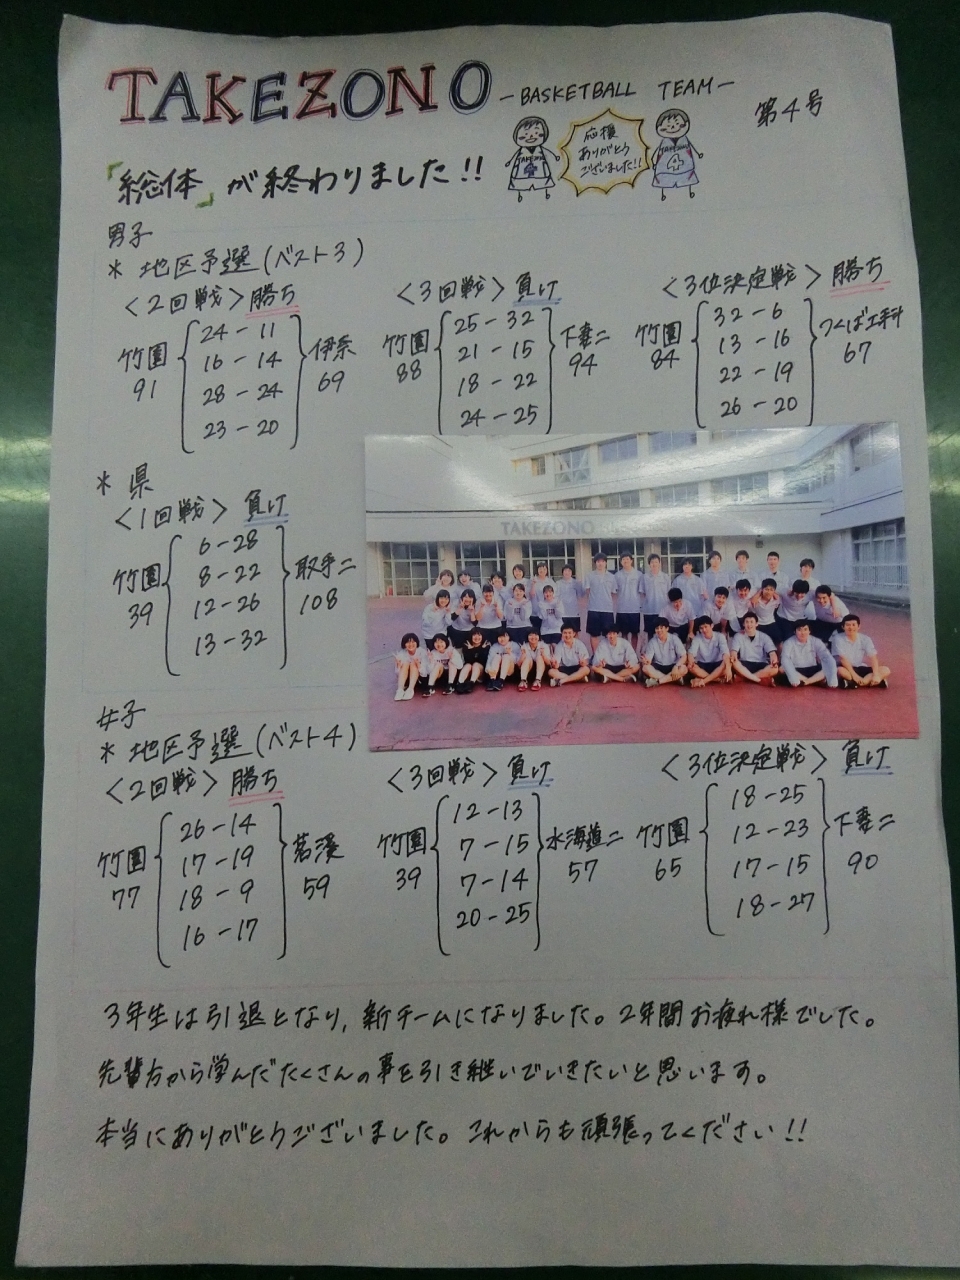 TAKEZONO -BASKETBALL TEAM-
第4号
応援
ありがとう
ございました!!
TAKEZONO
4
TAKEZONO
4
「総体」が終わりました!!
男子
* 地区予選(ベスト3)
<2回戦> 勝ち
竹園
91
24-11
16-14
28-24
23-20
伊奈
69
<3回戦> 負け
竹園
88
25-32
21-15
18-22
24-25
下妻二
94
<3位決定戦> 勝ち
竹園
84
32-6
13-16
22-19
26-20
つくば工科
67
* 県
<1回戦> 負け
竹園
39
6-28
8-22
12-26
13-32
取手二
108
TAKEZONO
女子
* 地区予選(ベスト4)
<2回戦> 勝ち
竹園
77
26-14
17-19
18-9
16-17
茗溪
59
<3回戦> 負け
竹園
39
12-13
7-15
7-14
20-25
水海道二
57
<3位決定戦> 負け
竹園
65
18-25
12-23
17-15
18-27
下妻二
90
3年生は引退となり、新チームになりました。2年間お疲れ様でした。
先輩方から学んだたくさんの事を引き継いでいきたいと思います。
本当にありがとうございました。これからも頑張ってください!!